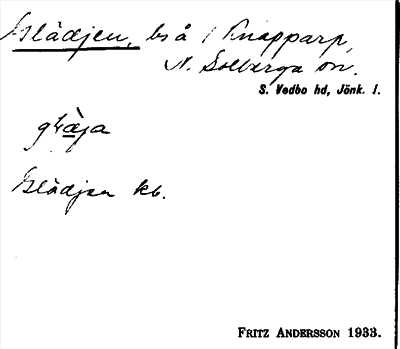 Glädjen, bs å / Knapparp,
N. Solberga sn.
S. Vedbo hd, Jönk. l.
Glädjen kb.
FRITZ ANDERSSON 1933.